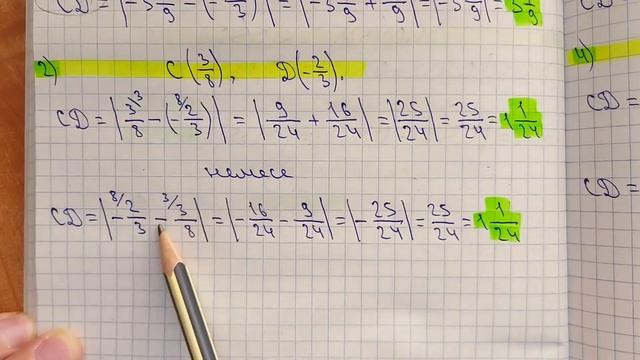 CD = |-3 /9 - (- /3)| = |-3 /9 + /9| = |-3 /9| = 3 /9
2) C(3/8), D(-2/3).
CD = |3/8 - (-2/3)| = |9/24 + 16/24| = |25/24| = 25/24 = 1 1/24
немесе
CD = |-2/3 - 3/8| = |-16/24 - 9/24| = |-25/24| = 25/24 = 1 1/24
4)
CD =
CD =